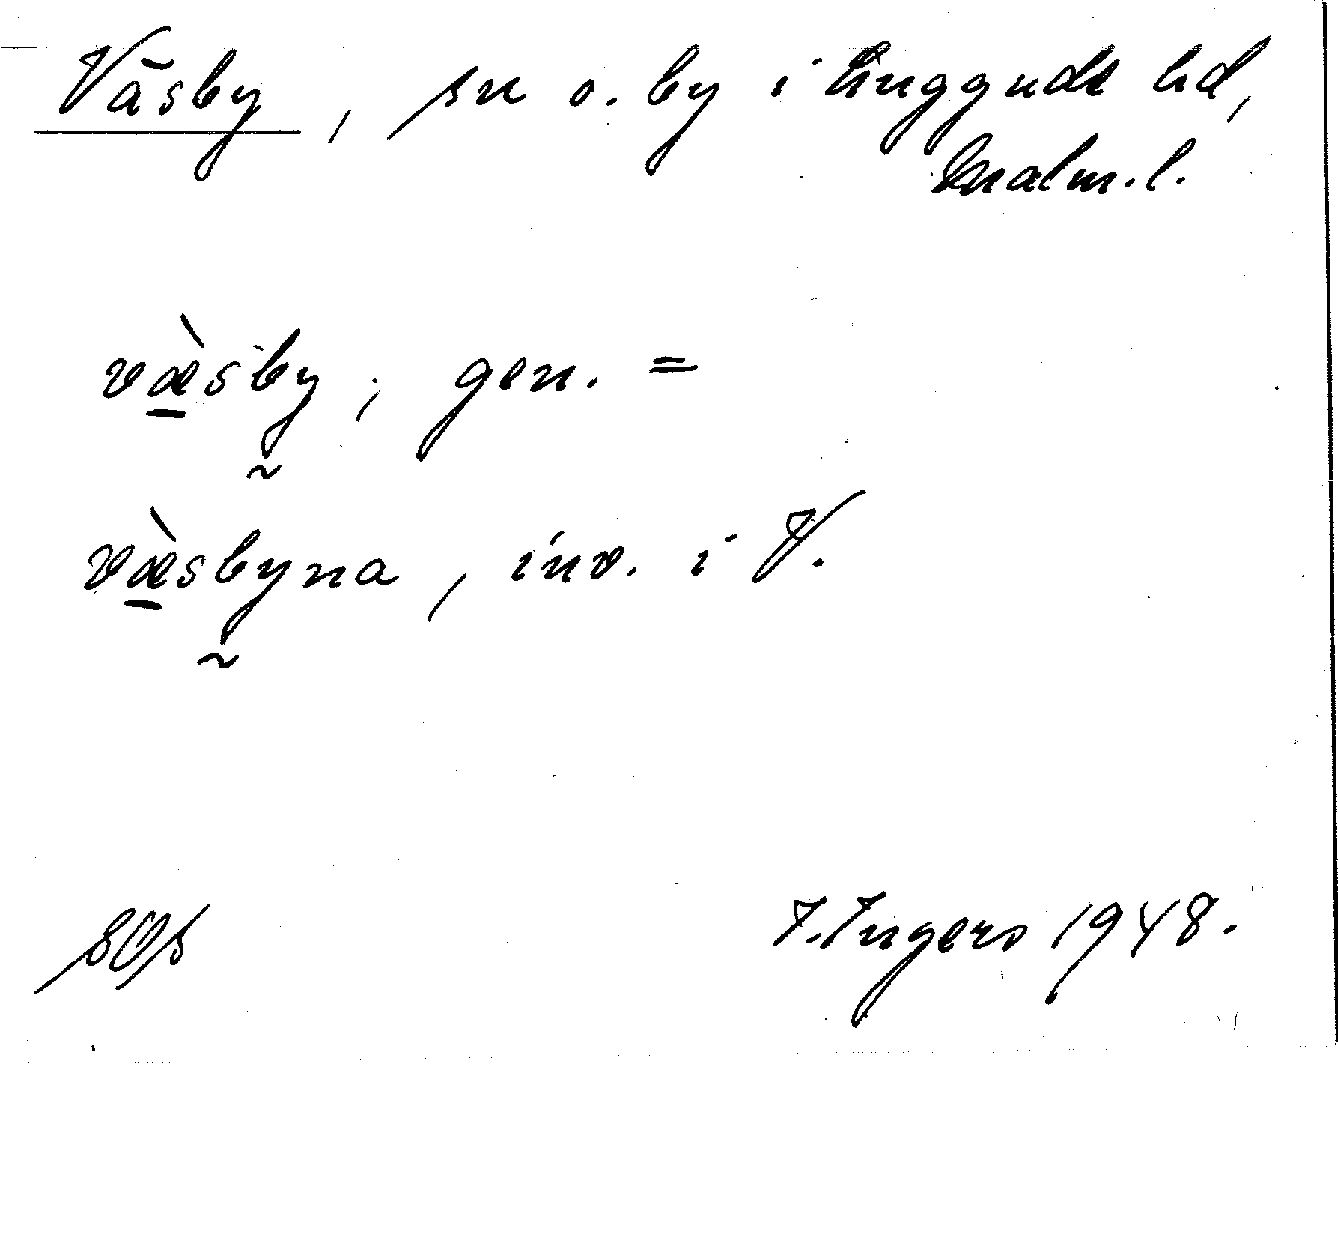 Väsby, sn o. by i Luggude hd,
Malm. l.
væ̀sby, gen. =
væ̀sbyna, inv. i V.
I. Ingers 1948.